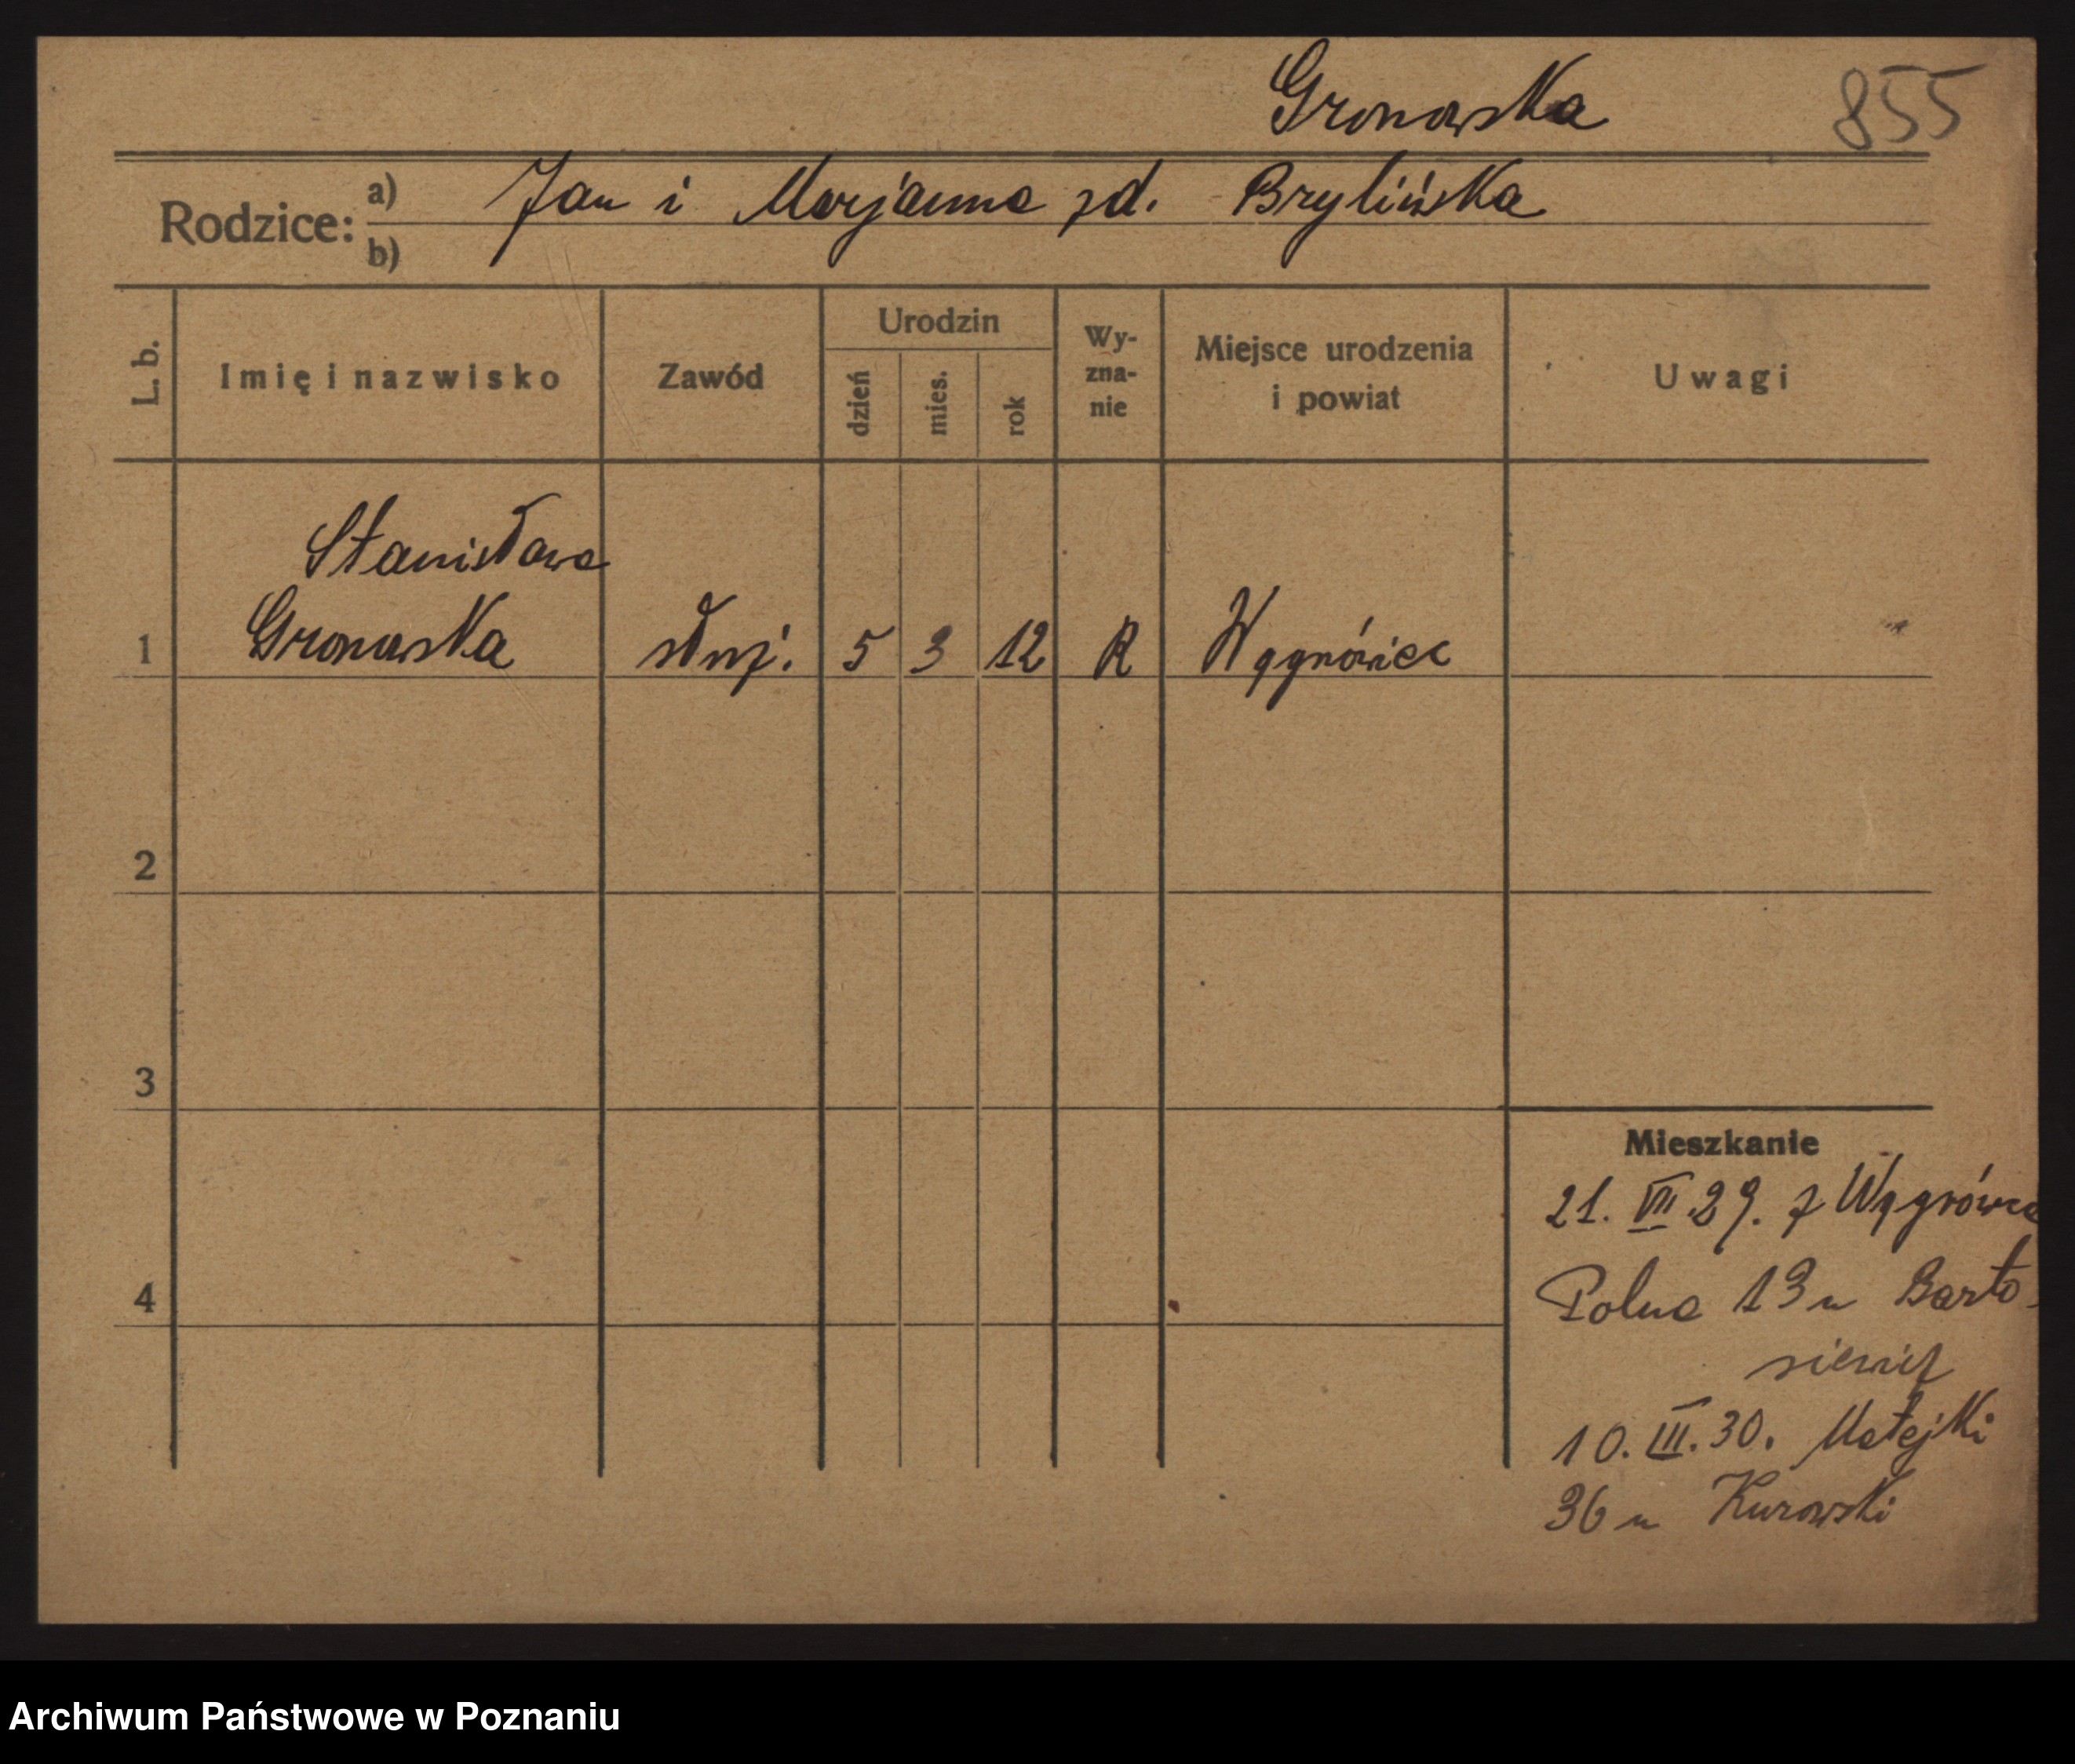 Gronowska 855
Rodzice: a) Jan i Marjanna zd. Brylińska
b)
L. b. Imię i nazwisko Zawód Urodzin dzień mies. rok Wy-zna-nie Miejsce urodzenia i powiat Uwagi
Stanisława
1 Gronowska służ. 5 3 12 R Wągrówiec
2
3
Mieszkanie
21. VII 29. z Wągrówca
4 Polna 13 u Barto-
siewicz
10. III. 30. Matejki
36 u Kurowski
Archiwum Państwowe w Poznaniu